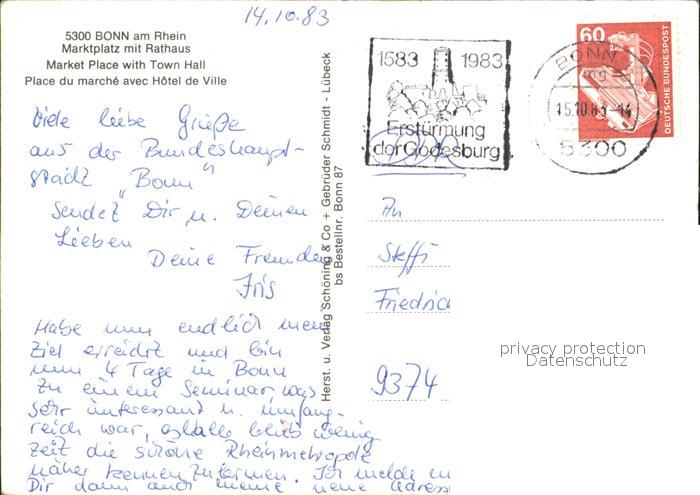 14.10.83
5300 BONN am Rhein
Marktplatz mit Rathaus
Market Place with Town Hall
Place du marché avec Hôtel de Ville
Viele liebe Grüße
aus der Bundeshaupt-
stadt "Bonn"
sendet Dir u. Deinen
Lieben
Deine Freundin
Iris
Habe nun endlich mein
Ziel erreicht und bin
nun 4 Tage in Bonn
zu einem Seminar, was
sehr interessant u. umfang-
reich war, deshalb blieb wenig
Zeit die schöne Rheinmetropole
näher kennenzulernen. Ich melde m
Dir dann auch meine neue Adress
Herst. u. Verlag Schöning & Co + Gebrüder Schmidt - Lübeck
bs Bestellnr. Bonn 87
1583 1983
Erstürmung
der Godesburg
60
DEUTSCHE BUNDESPOST
BONN 1
15.10.83-14
5300
An
Steffi
Friedric
9374
privacy protection
Datenschutz